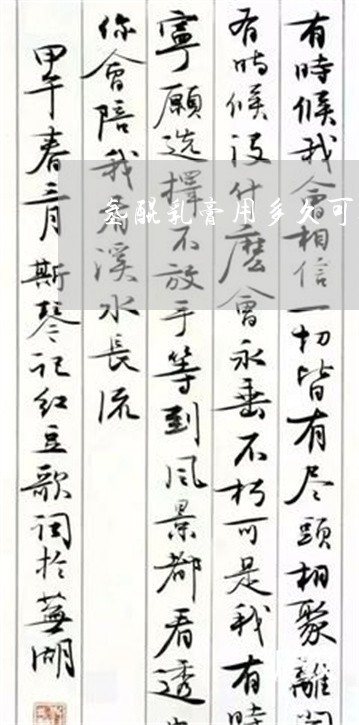 有時候我會相信一切皆有尽頭相聚離開
有時候没什麽會永垂不朽可是我有時
寧願选擇不放手等到风景都看透
你會陪我看溪水長流
甲午春三月斯琴记红豆歌词於蕪湖
氢醌乳膏用多久可